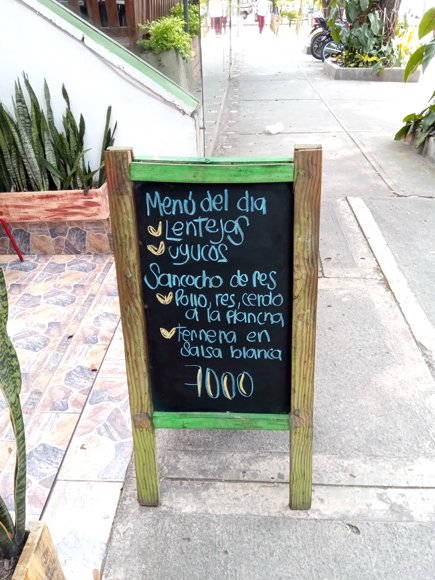 Menú del dia
Lentejas
uyucos
Sancocho de res
Pollo, res, cerdo
a la plancha
Ternera en
salsa blanca
7000